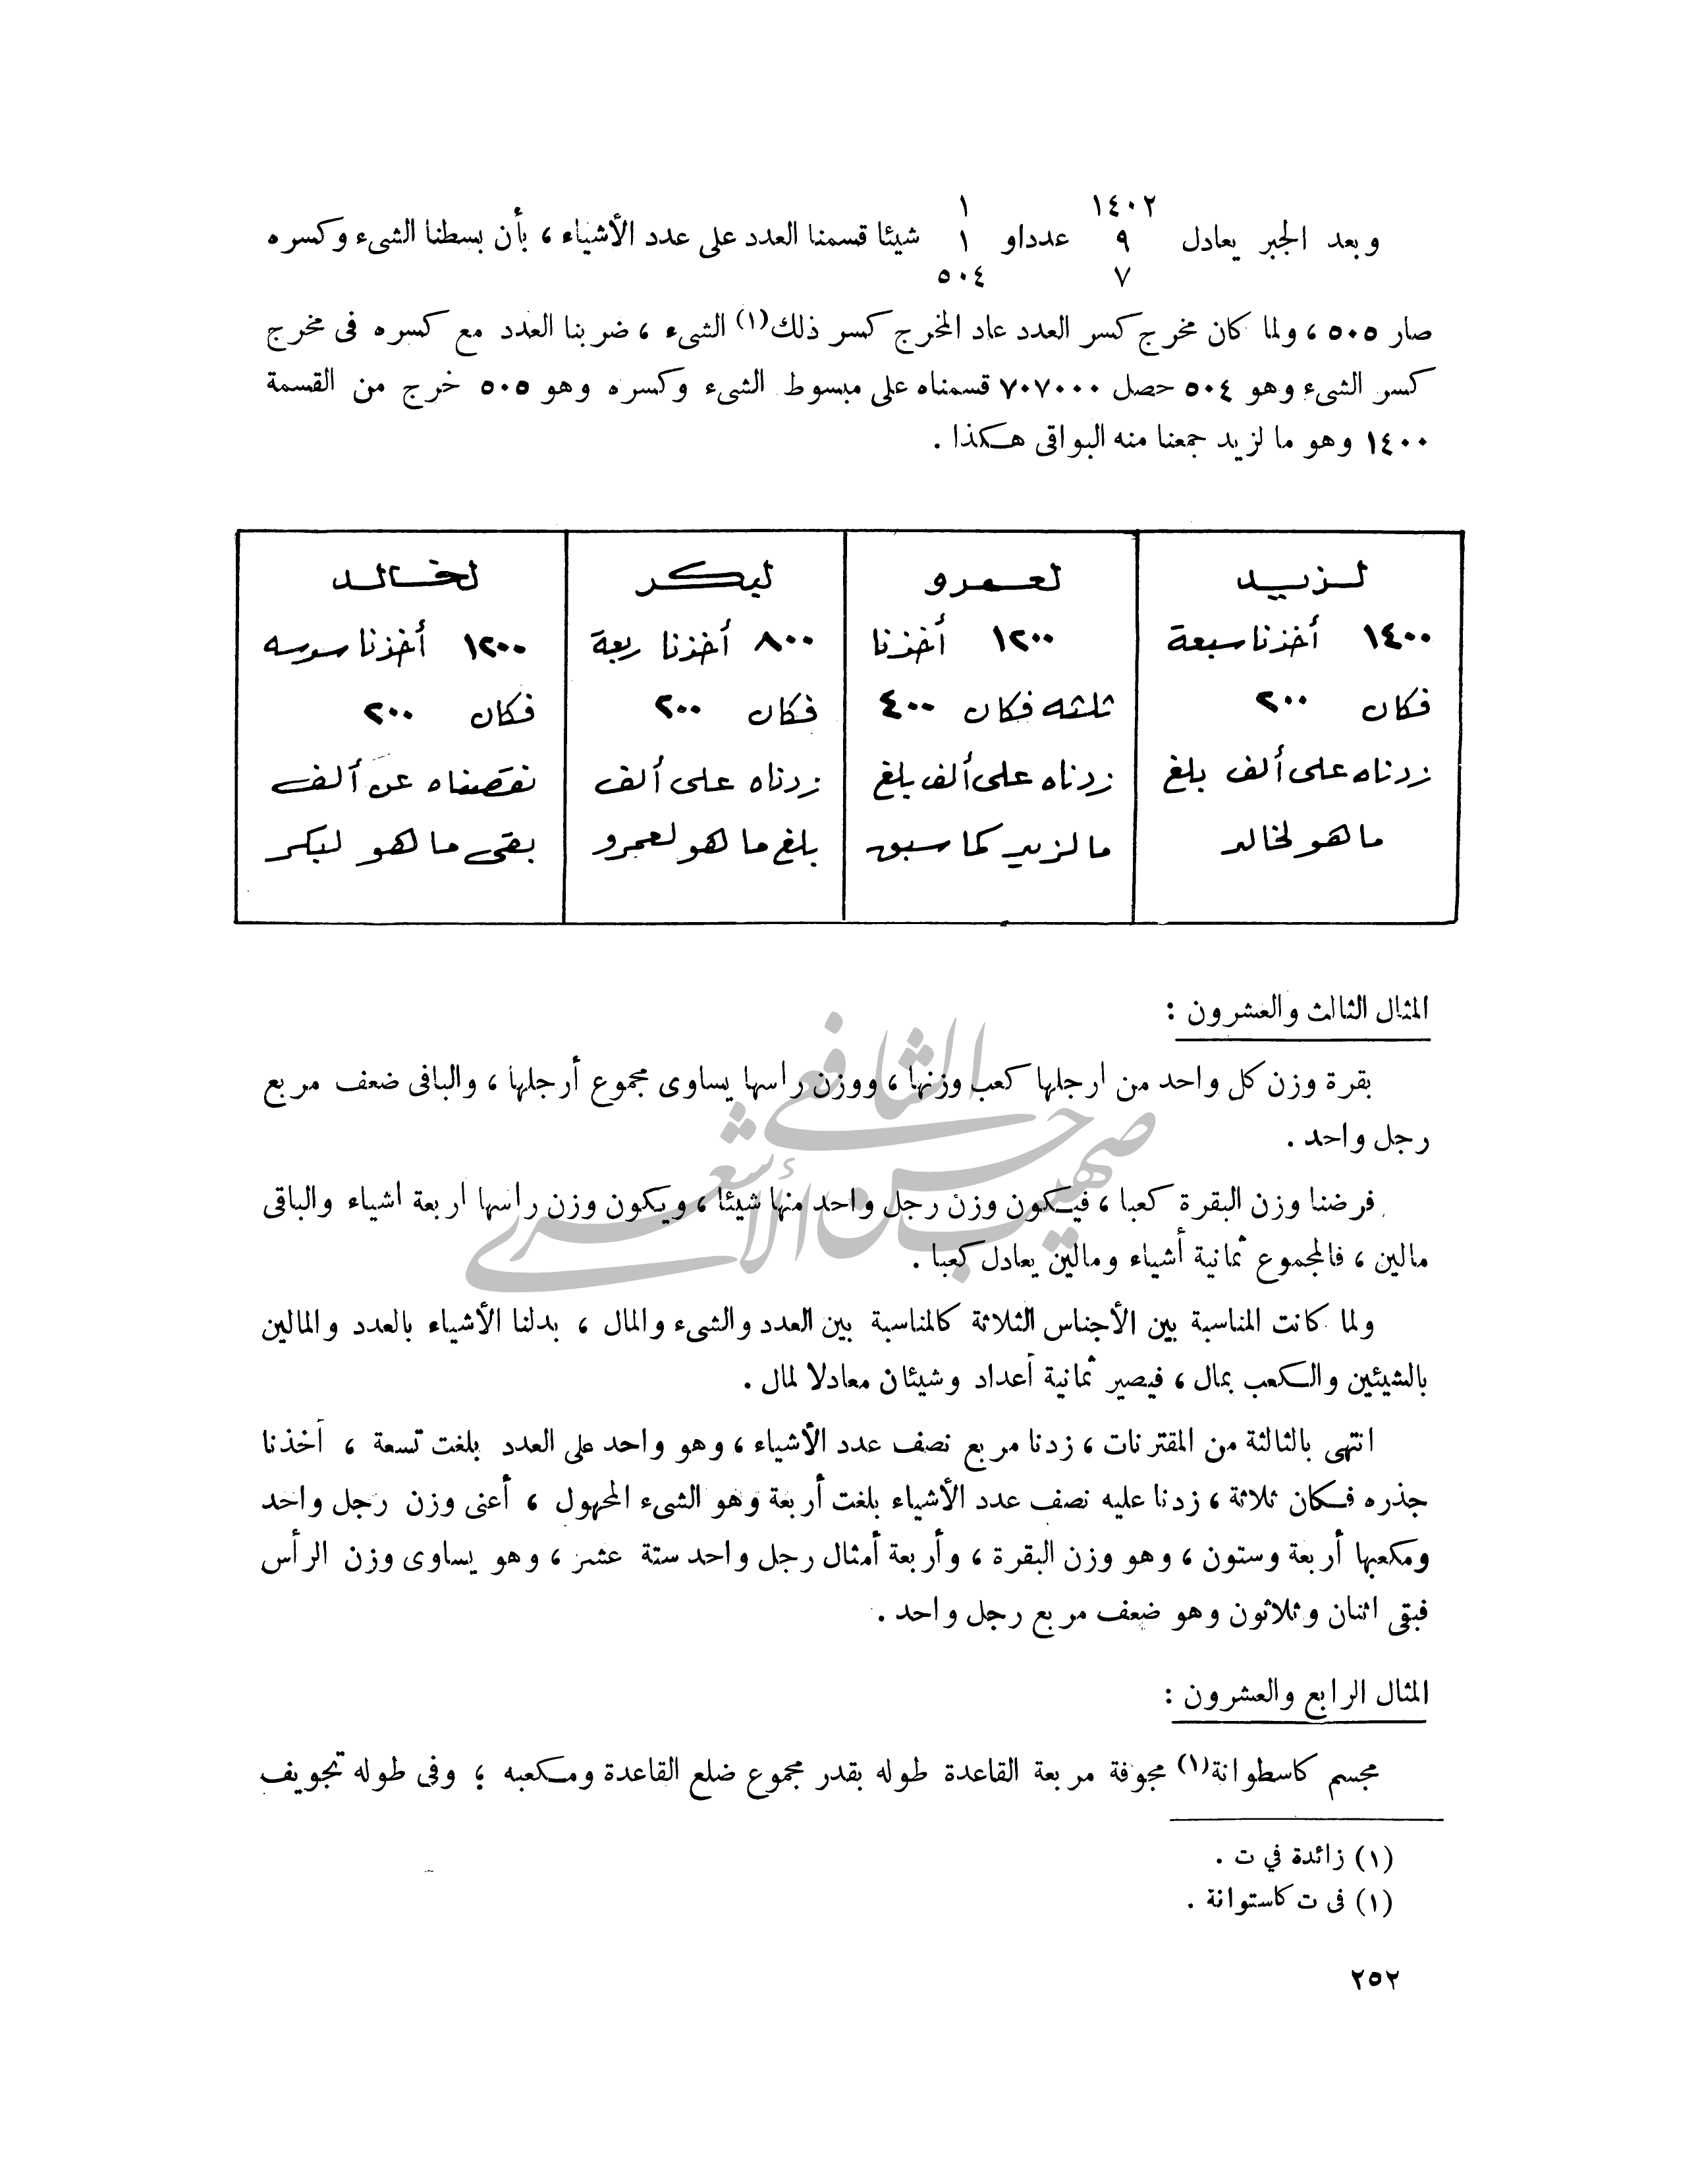 ١٤٠٢ ١
وبعد الجبر يعادل ٩ عدداو ١ شيئا قسمنا العدد على عدد الأشياء ، بأن بسطنا الشىء وكسره
٧ ٥٠٤
صار ٥٠٥ ، ولما كان مخرج كسر العدد عاد المخرج كسر ذلك(١) الشىء ، ضربنا العدد مع كسره فى مخرج
كسر الشىء وهو ٥٠٤ حصل ٧٠٧٠٠٠ قسمناه على مبسوط الشىء وكسره وهو ٥٠٥ خرج من القسمة
١٤٠٠ وهو ما لزيد جمعنا منه البواقى هكذا .
لزيد
١٤٠٠ أخذنا سبعة
فكان ٢٠٠
زدناه على ألف بلغ
ما هو لخالد
لعمرو
١٢٠٠ أخذنا
ثلثه فكان ٤٠٠
زدناه على ألف بلغ
ما لزيد كما سبق
لبكر
٨٠٠ أخذنا ربعة
فكان ٢٠٠
زدناه على ألف
بلغ ما هو لعمرو
لخالد
١٢٠٠ أخذنا سدسه
فكان ٢٠٠
نقصناه عن ألف
بقى ما هو لبكر
المثال الثالث والعشرون :
بقرة وزن كل واحد من ارجلها كعب وزنها ، ووزن راسها يساوى مجموع أرجلها ، والباقى ضعف مربع
رجل واحد .
فرضنا وزن البقرة كعبا ، فيكون وزن رجل واحد منها شيئا ، ويكون وزن راسها اربعة اشياء والباقى
مالين ، فالمجموع ثمانية أشياء ومالين يعادل كعبا .
ولما كانت المناسبة بين الأجناس الثلاثة كالمناسبة بين العدد والشىء والمال ، بدلنا الأشياء بالعدد والمالين
بالشيئين والكعب بمال ، فيصير ثمانية أعداد وشيئان معادلا لمال .
انتهى بالثالثة من المقترنات ، زدنا مربع نصف عدد الأشياء ، وهو واحد على العدد بلغت تسعة ، أخذنا
جذره فكان ثلاثة ، زدنا عليه نصف عدد الأشياء بلغت أربعة وهو الشىء المجهول ، أعنى وزن رجل واحد
ومكعبها أربعة وستون ، وهو وزن البقرة ، وأربعة أمثال رجل واحد ستة عشر ، وهو يساوى وزن الرأس
فبقى اثنان وثلاثون وهو ضعف مربع رجل واحد .
المثال الرابع والعشرون :
مجسم كاسطوانة(١) مجوفة مربعة القاعدة طوله بقدر مجموع ضلع القاعدة ومكعبه ؛ وفى طوله تجويف
(١) زائدة في ت .
(١) فى ت كاستوانة .
٢٥٢
صهيب حسن الشافعي الأشعري